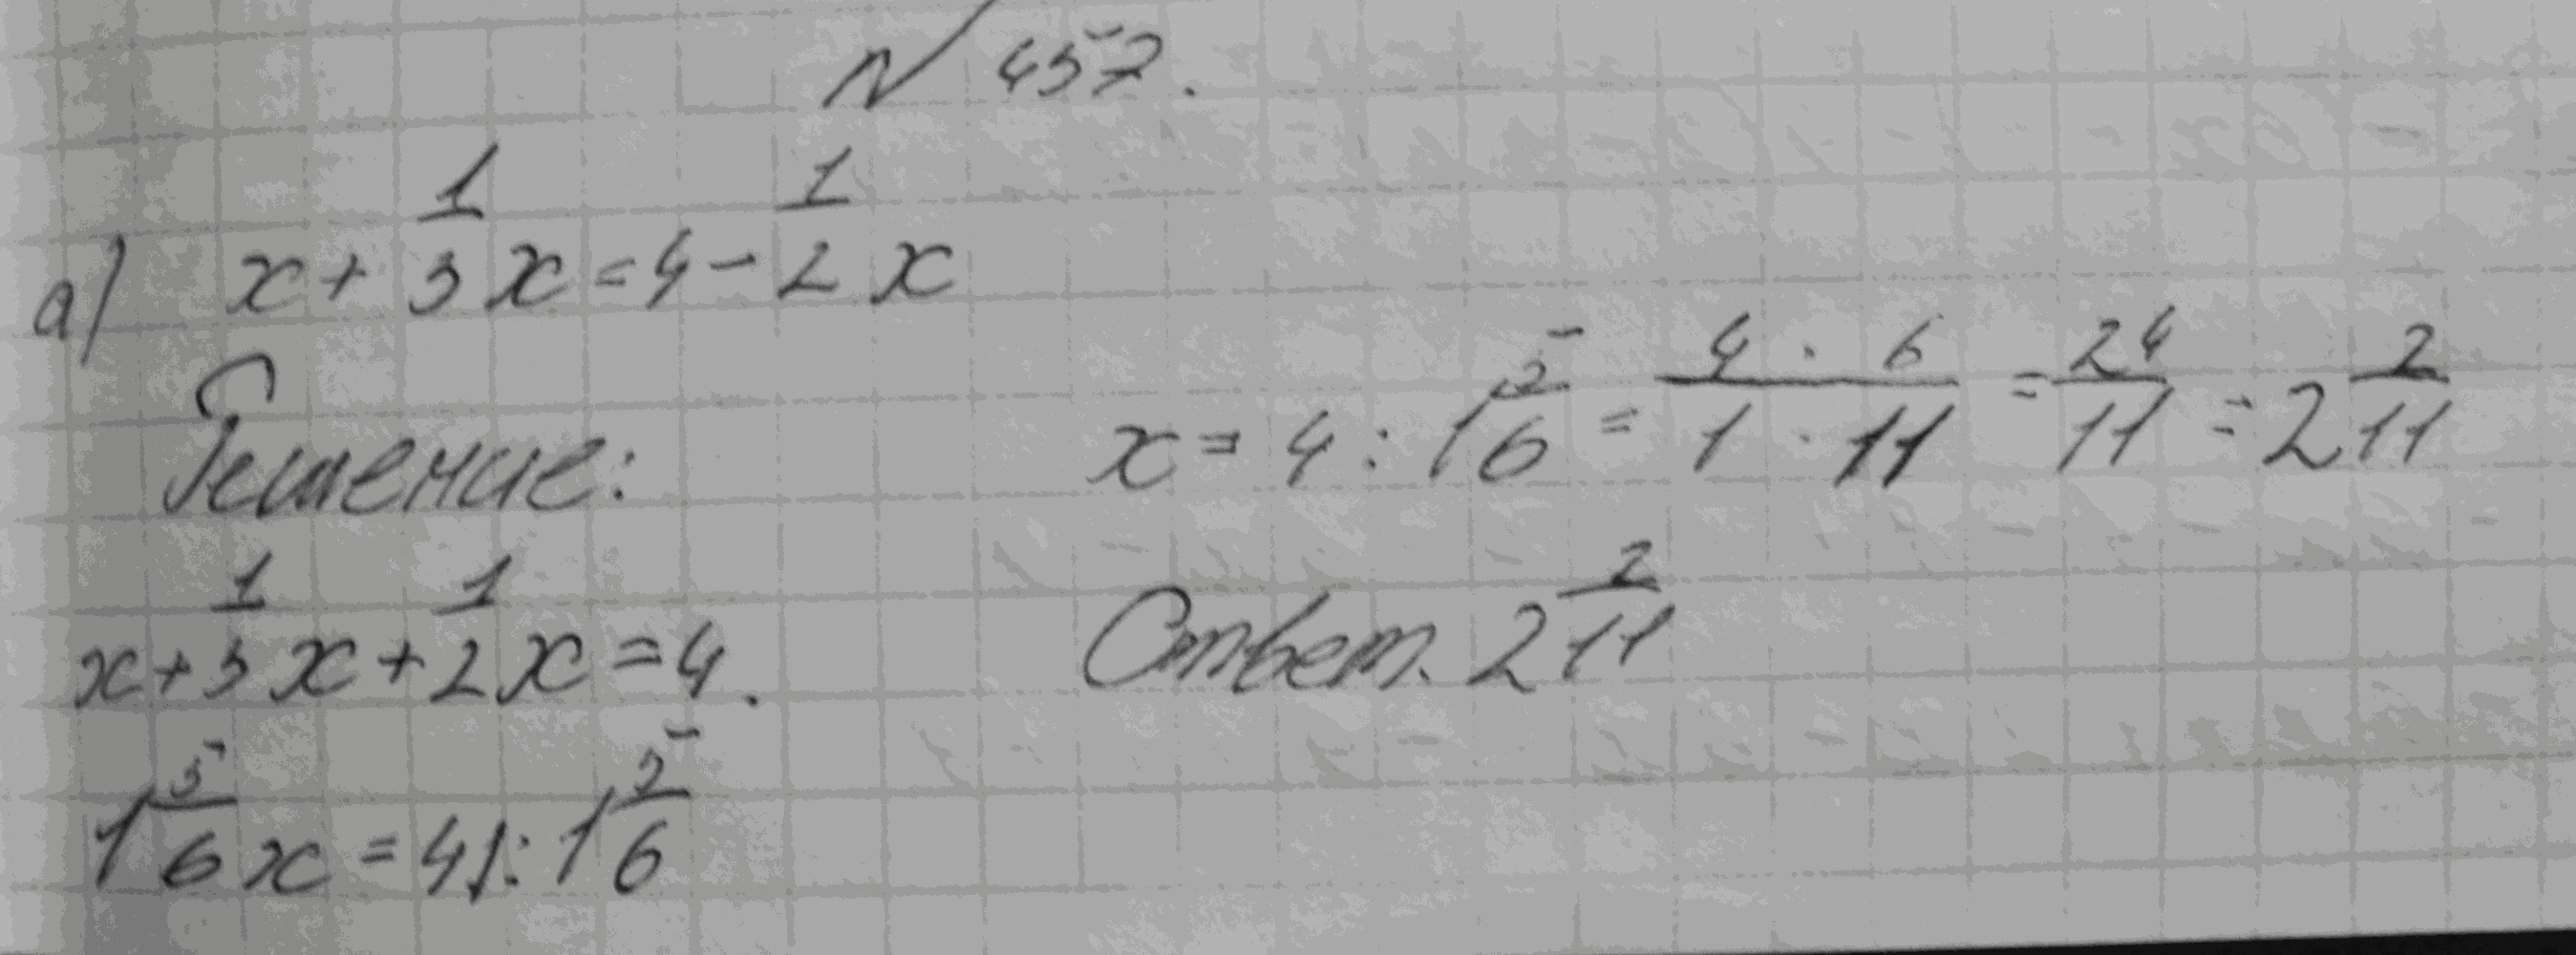 N 457.
а) x + 1/3 x = 4 - 1/2 x
Решение:
x + 1/3 x + 1/2 x = 4.
1 5/6 x = 4 | : 1 5/6
x = 4 : 1 5/6 = 4 · 6 / 1 · 11 = 24/11 = 2 2/11
Ответ. 2 2/11